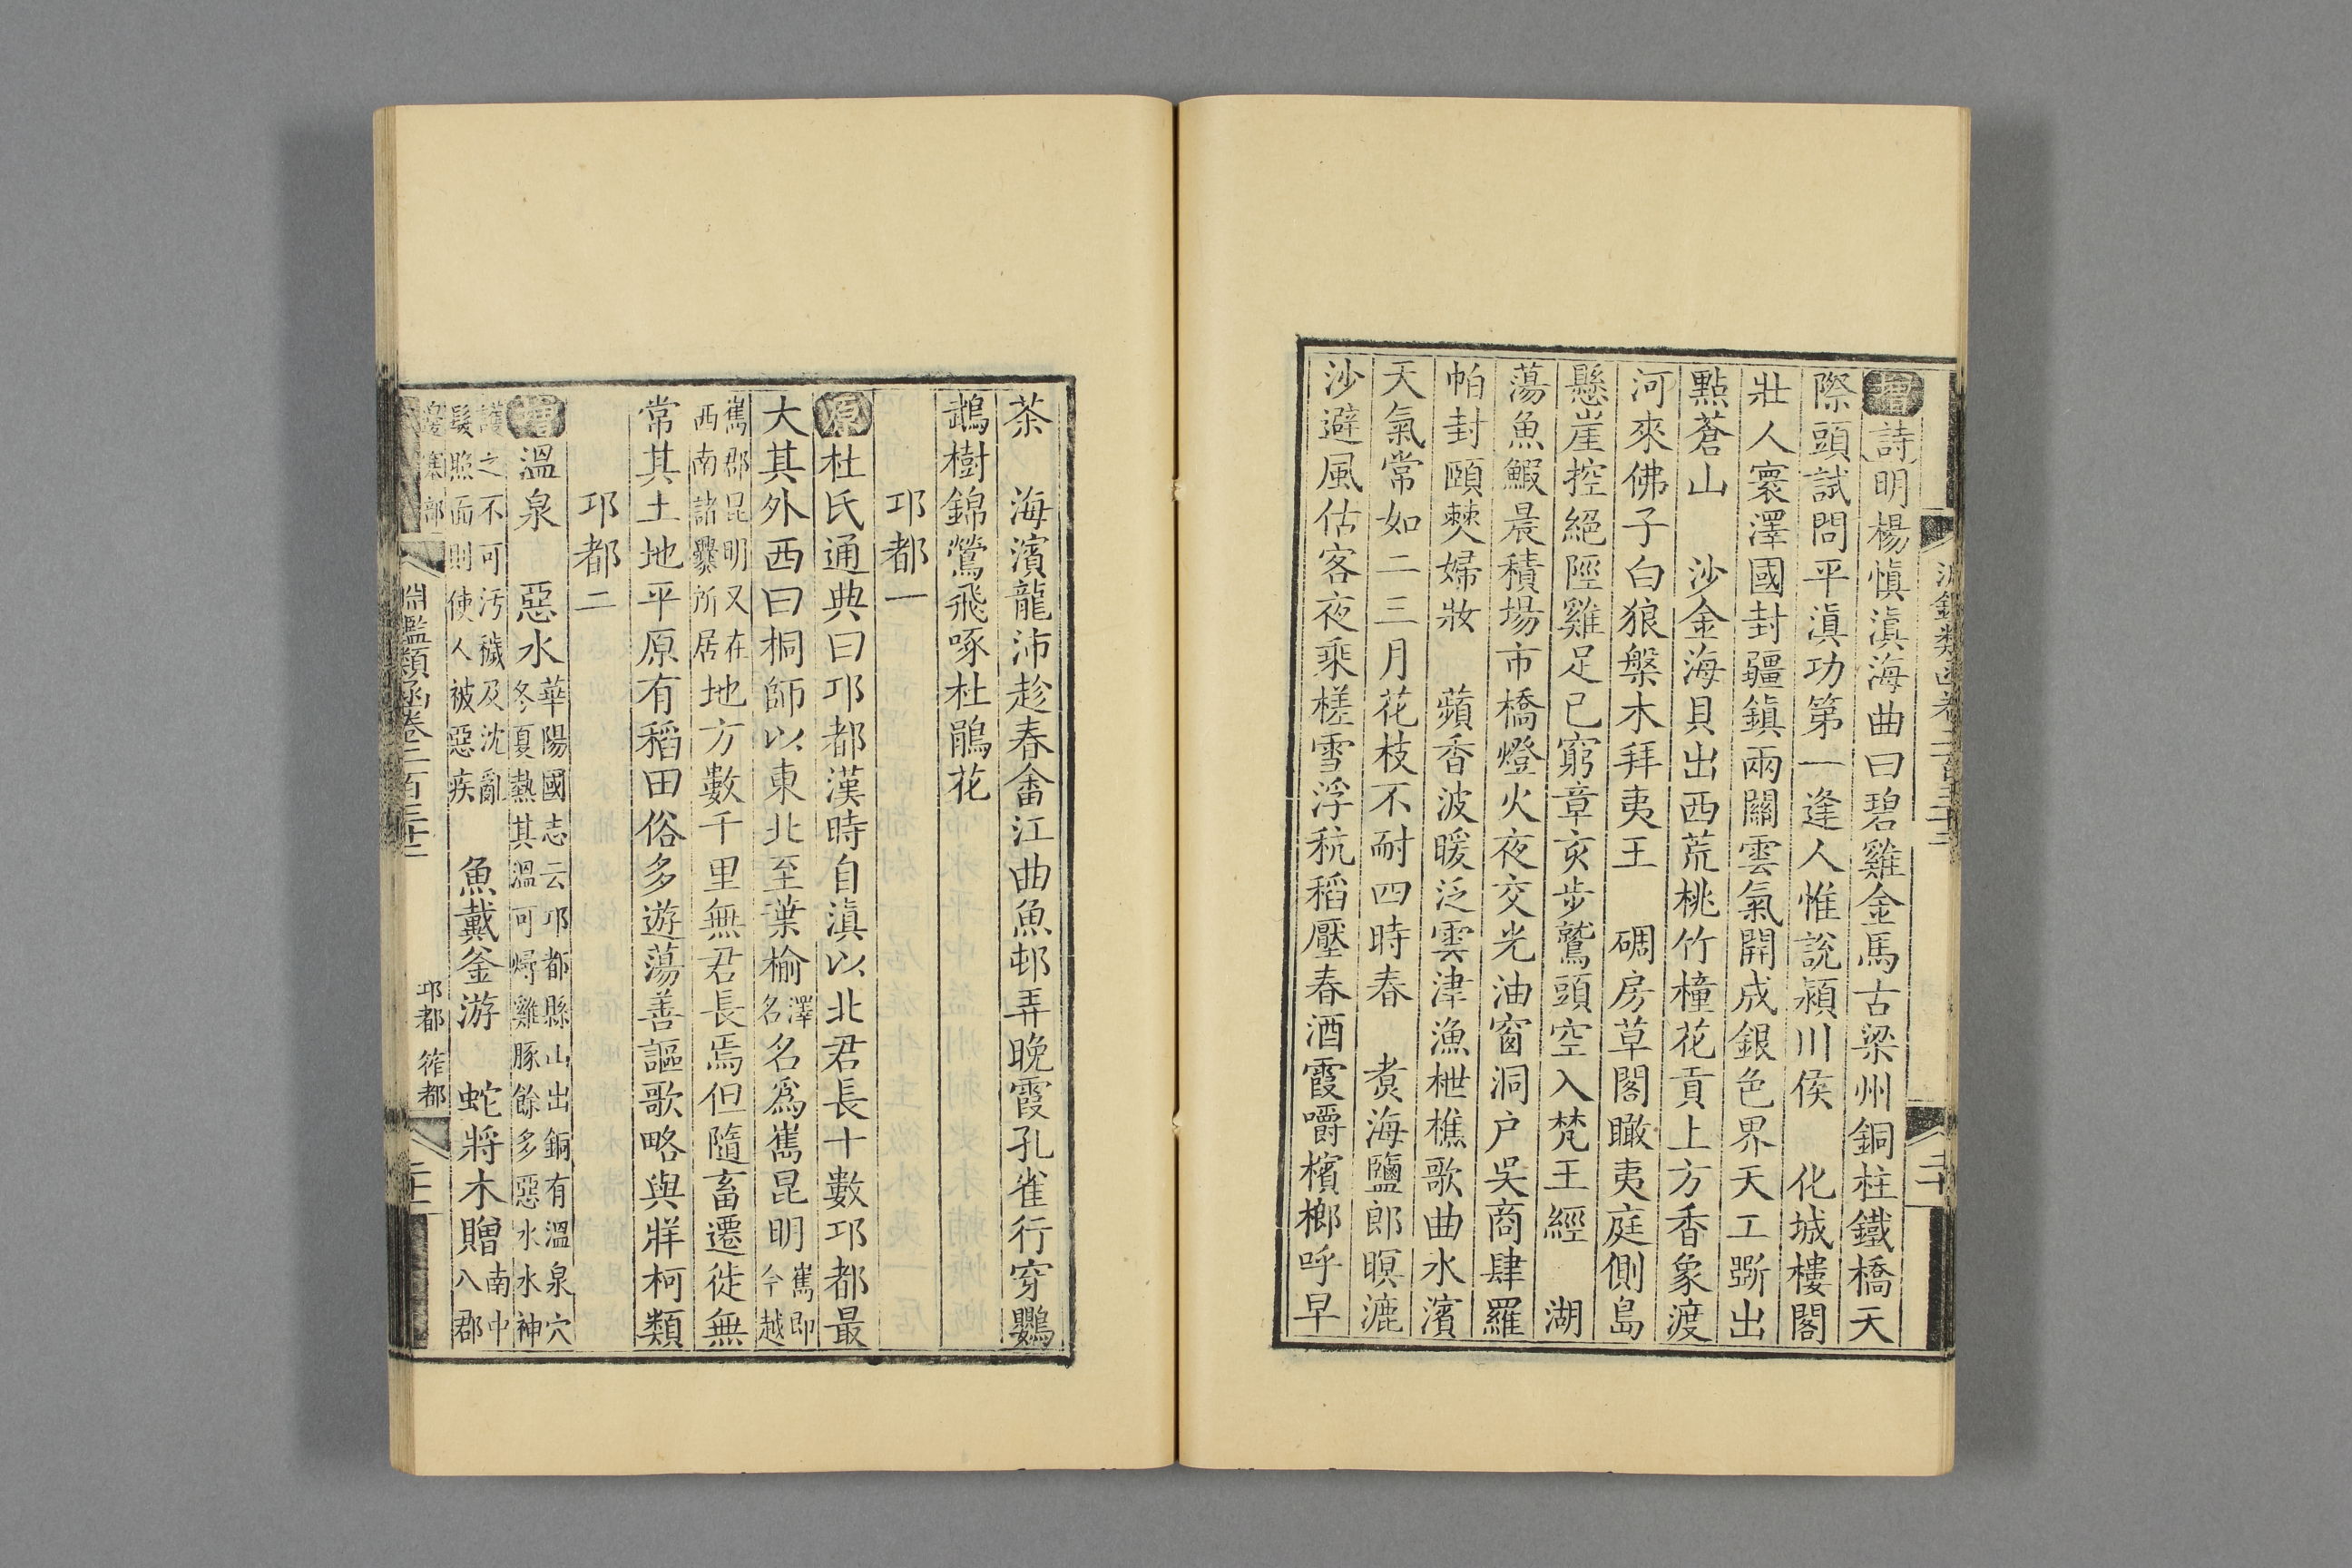 增詩明楊愼滇海曲曰碧雞金馬古梁州銅柱鐵橋天
際頭試問平滇功第一逢人惟說潁川侯　化城樓閣
壯人寰澤國封疆鎭兩關雲氣開成銀色界天工斲出
點蒼山　沙金海貝出西荒桃竹橦花貢上方香象渡
河來佛子白狼槃木拜夷王　碉房草閣瞰夷庭側島
懸崖控絕陘雞足已窮章亥步鷲頭空入梵王經　湖
蕩魚鰕晨積場市橋燈火夜交光油窗洞戶吳商肆羅
帕封頤僰婦妝　蘋香波暖泛雲津漁枻樵歌曲水濱
天氣常如二三月花枝不耐四時春　煑海鹽郎暝漉
沙避風估客夜乘槎雪浮秔稻壓春酒霞嚼檳榔呼早
茶　海濱龍沛趁春畬江曲魚邨弄晚霞孔雀行穿鸚
鵡樹錦鶯飛啄杜鵑花
邛都一
原杜氏通典曰邛都漢時自滇以北君長十數邛都最
大其外西曰桐師以東北至葉榆澤名名爲嶲昆明嶲即今越
嶲郡昆明又在西南諸爨所居地方數千里無君長焉但隨畜遷徙無
常其土地平原有稻田俗多遊蕩善謳歌略與牂柯類
邛都二
增溫泉　惡水華陽國志云邛都縣山出銅有溫泉穴冬夏熱其溫可燖雞豚餘多惡水水神
護之不可汚穢及沈亂髮照面則使人被惡疾　魚戴釜游　蛇將木贈南中八郡
邊塞部
淵鑑類函卷二百三十二
邛都　筰都
二十一